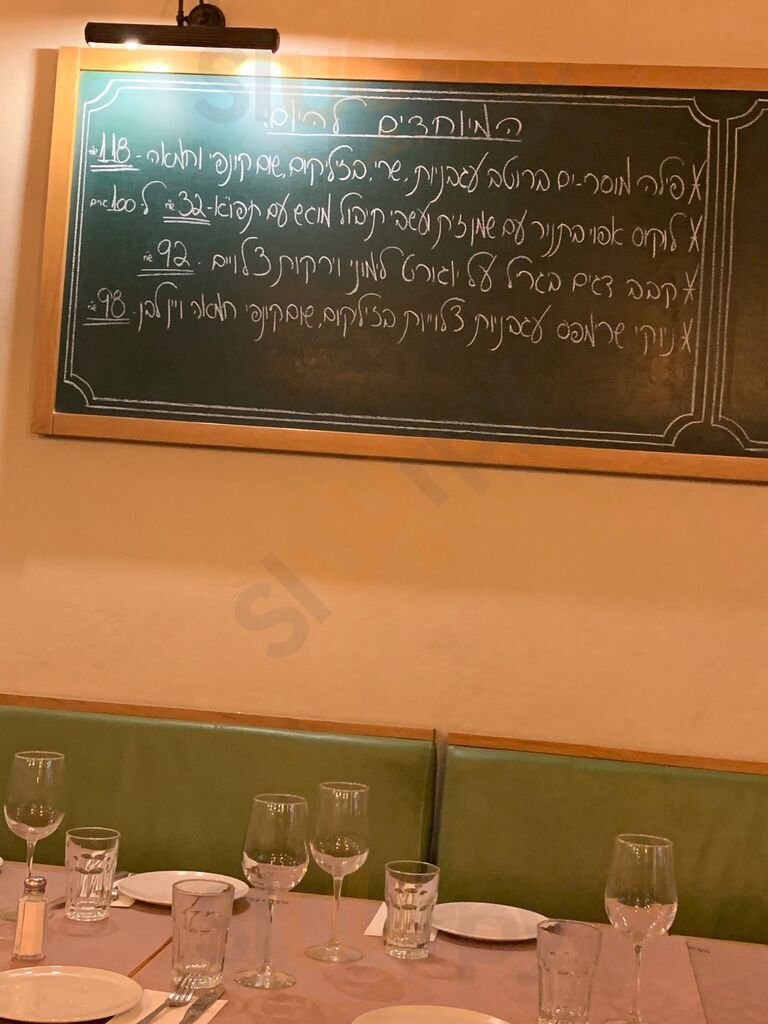 המיוחדים להיום:
* פילה מוסר-ים ברוטב עגבניות, שרי, בזיליקום, שום קונפי וחמאה - 118 ש"ח
* לוקוס אפוי בתנור עם שמן זית ועשבי תיבול מוגש עם תפו"א - 32 ש"ח ל-100 גרם
* קבב דגים בגריל על יוגורט לימוני וירקות צלויים - 92 ש"ח
* ניוקי שרימפס עגבניות צלויות בזיליקום, שום קונפי חמאה ויין לבן - 98 ש"ח